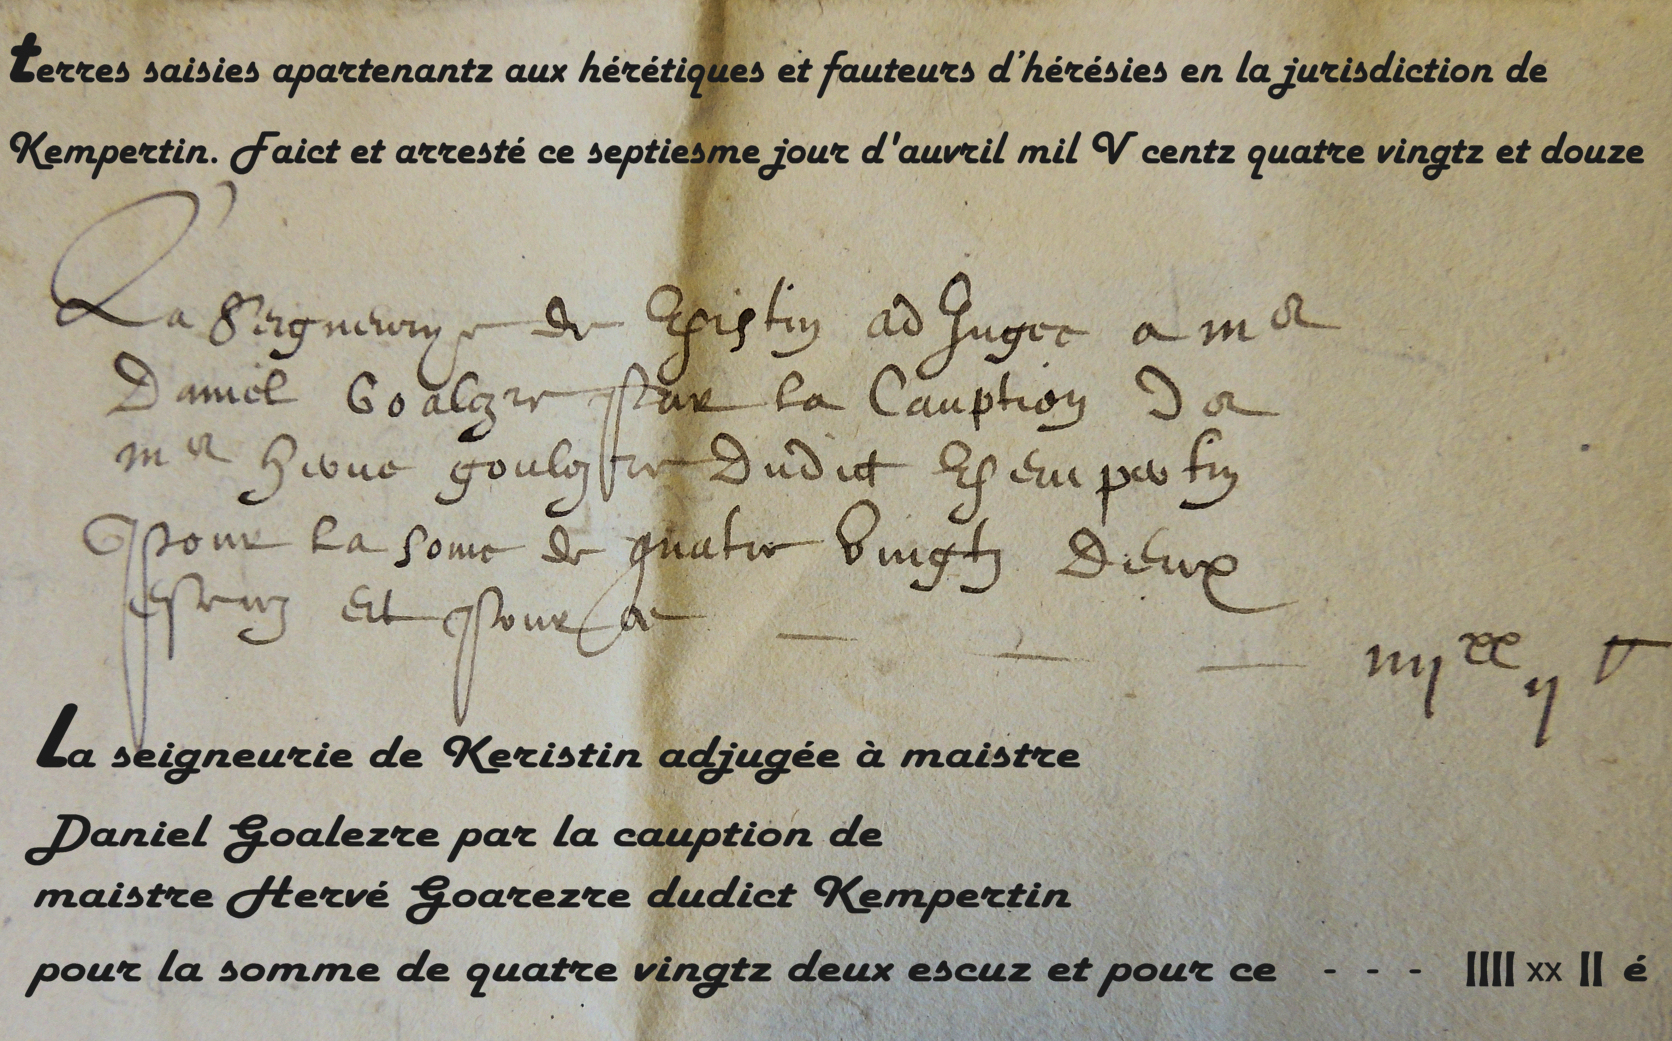 terres saisies apartenantz aux hérétiques et fauteurs d'hérésies en la jurisdiction de
Kempertin. Faict et arresté ce septiesme jour d'auvril mil V centz quatre vingtz et douze
La Seigneurye de Kristin adJugee a me
Daniel Goalezre par la Cauption De
me Herve Dudict Kempertin
Pour la some de quatre Vingtz Deux
escuz Et pour ce
iiijxx ij
La seigneurie de Keristin adjugée à maistre
Daniel Goalezre par la cauption de
maistre Hervé Goarezre dudict Kempertin
pour la somme de quatre vingtz deux escuz et pour ce - - - IIII xx II é